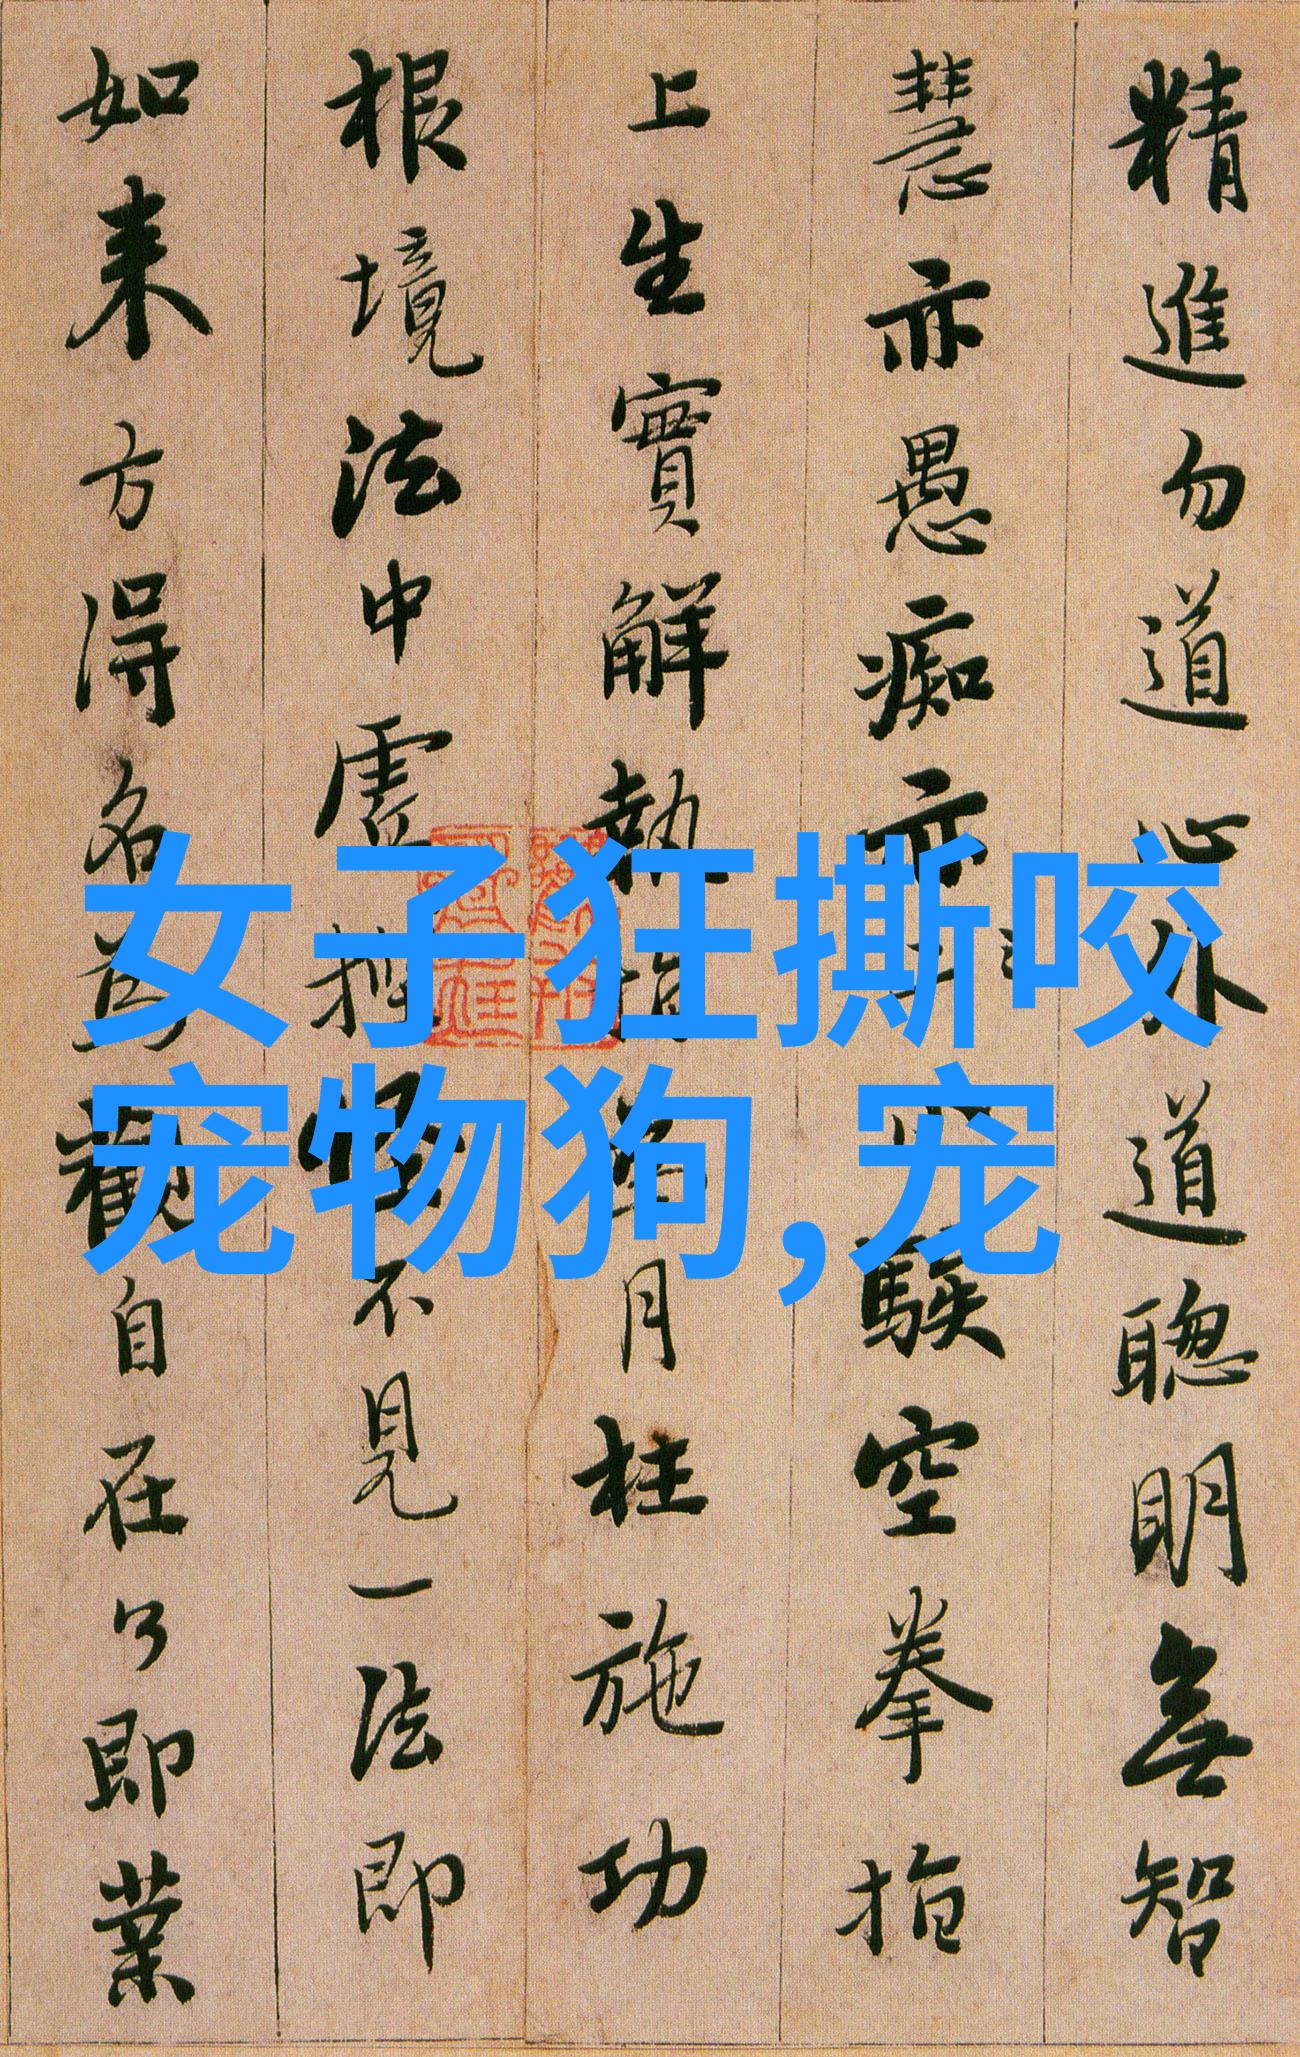 精進勿道心外道聰明無智
慧亦愚痴亦空拳指
上生實解執指月枉施功
根境法中虛捏怪不見一法即
如来方得名為觀自在了即業
女子狂撕咬
宠物狗,宠